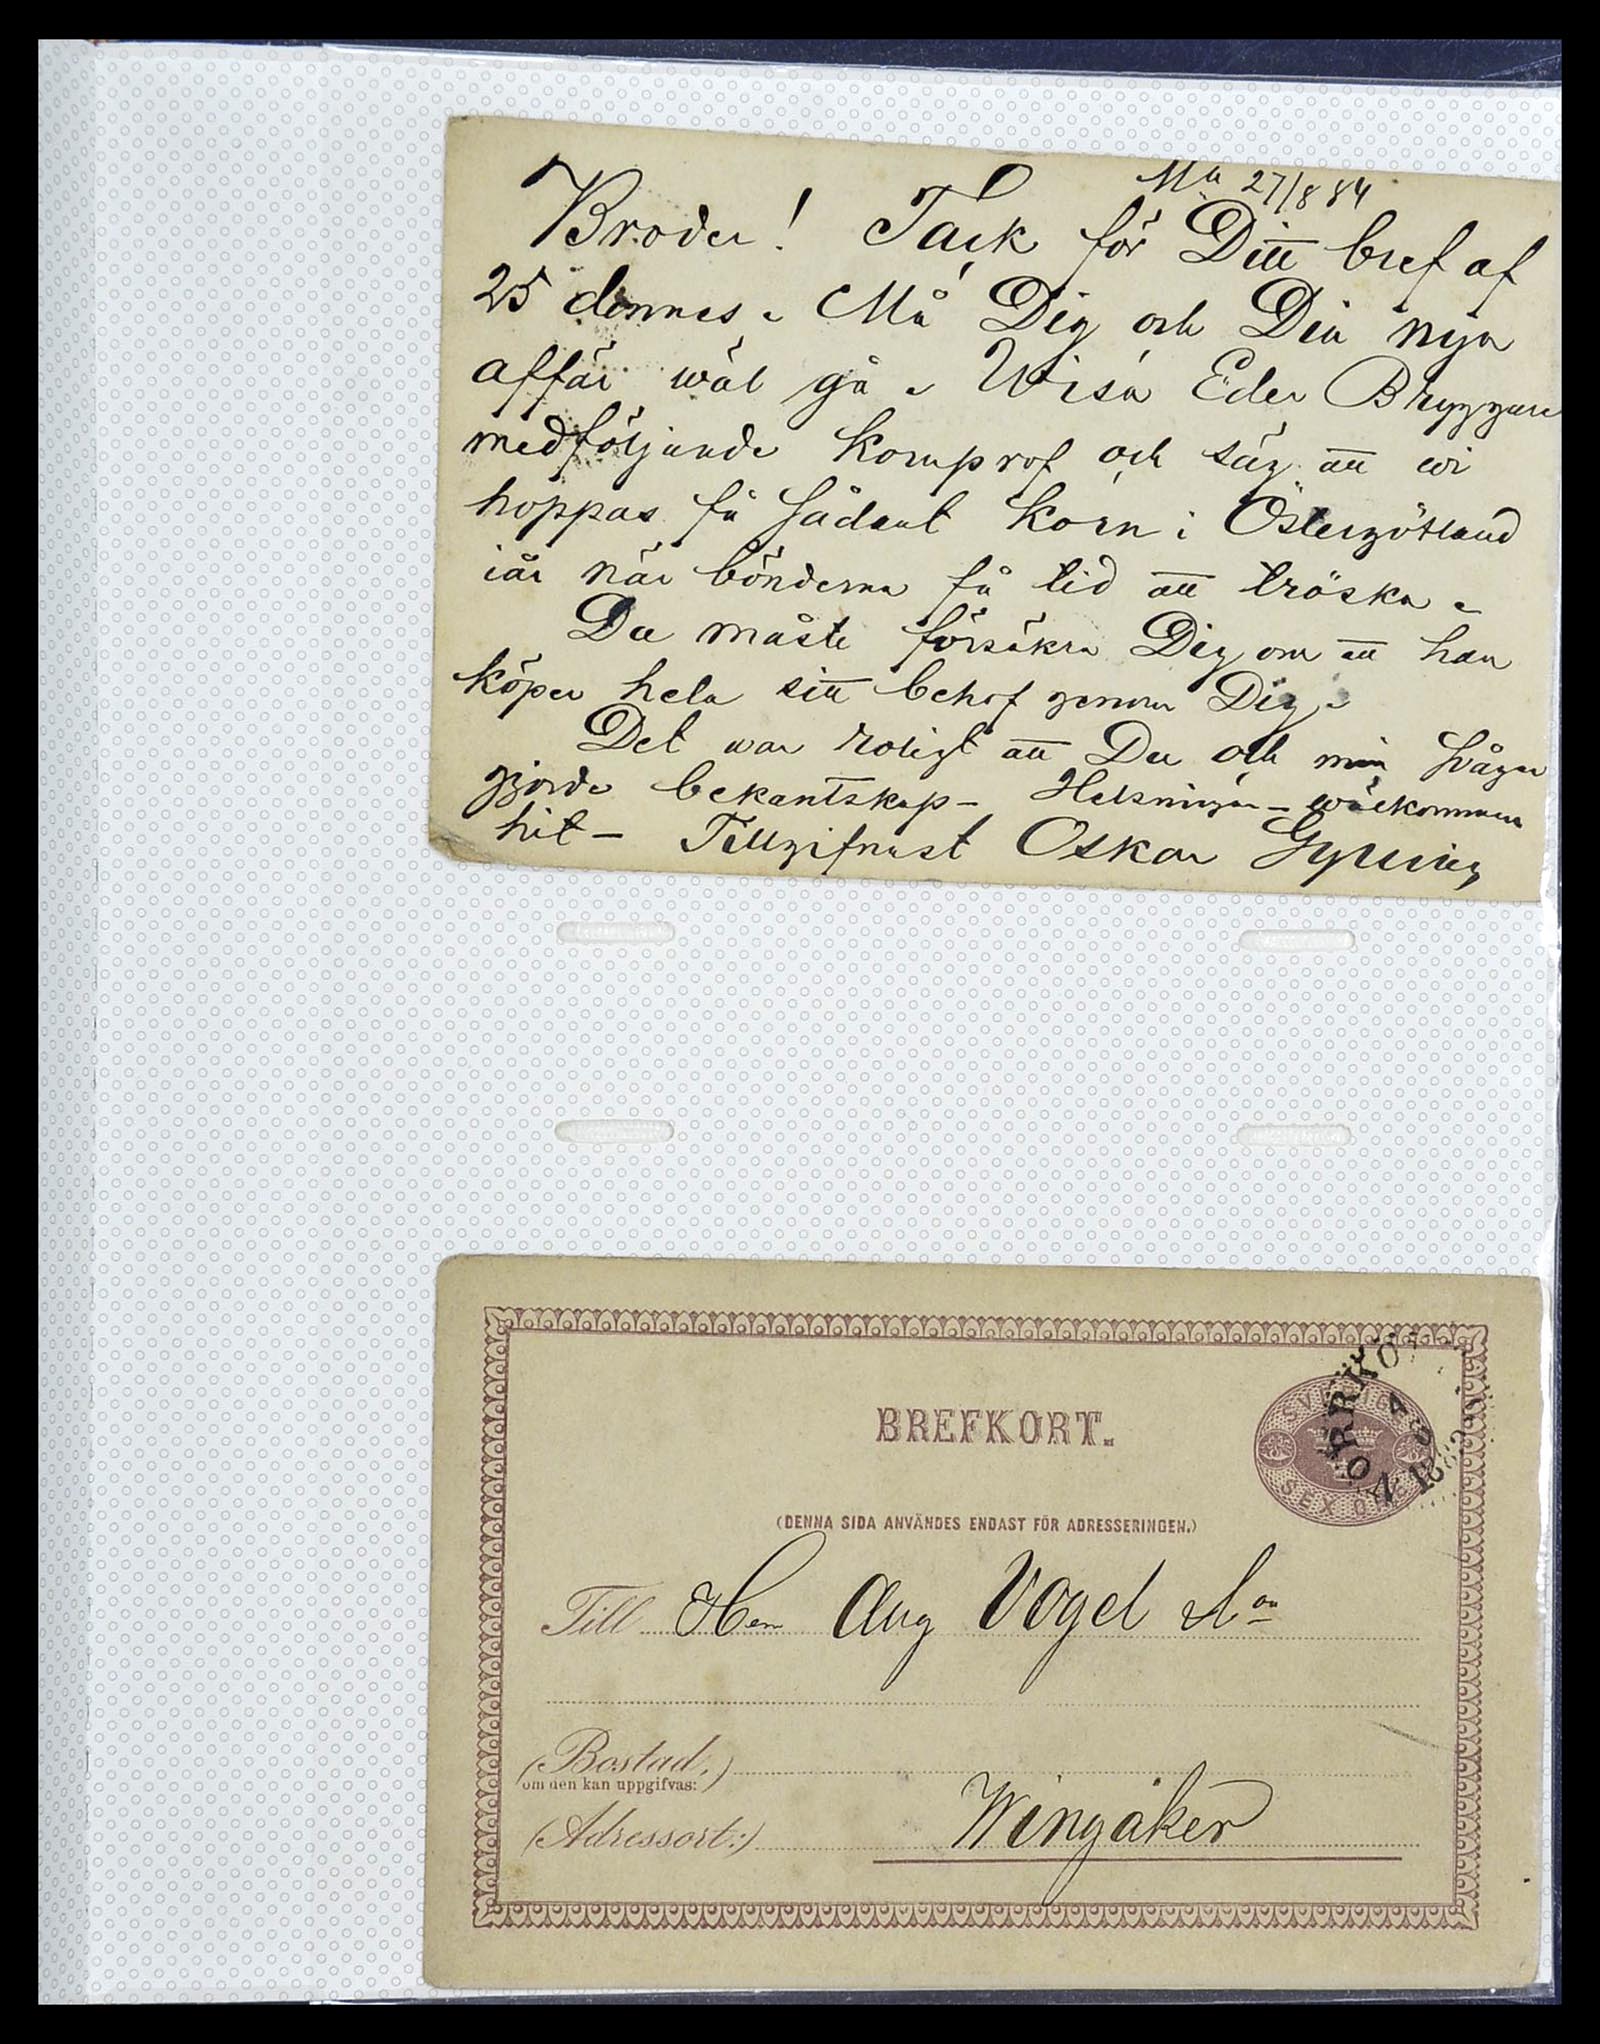 27/8 84
Broder! Tack för Ditt bref af
25 dennes. Må Dig och Din nya
affär wäl gå. Wisa Eder Bryggare
medföljande kornprof och säg att wi
hoppas få sådant korn i Östergötland
i år när bönderna få tid att tröska.
Du måste försäkra Dig om att han
köper hela sitt behof genom Dig.
Det war roligt att Du och min swåger
gjorde bekantskap – Helsningar – wälkommen
hit – Tillgifnast Oskar
NORRKÖ
4
6
188
SVERIGE
SEX ÖRE
BREFKORT.
(DENNA SIDA ANVÄNDES ENDAST FÖR ADRESSERINGEN.)
Till Herr Aug Vogel
(Bostad,)
om den kan uppgifvas:
(Adressort:) Wingåker